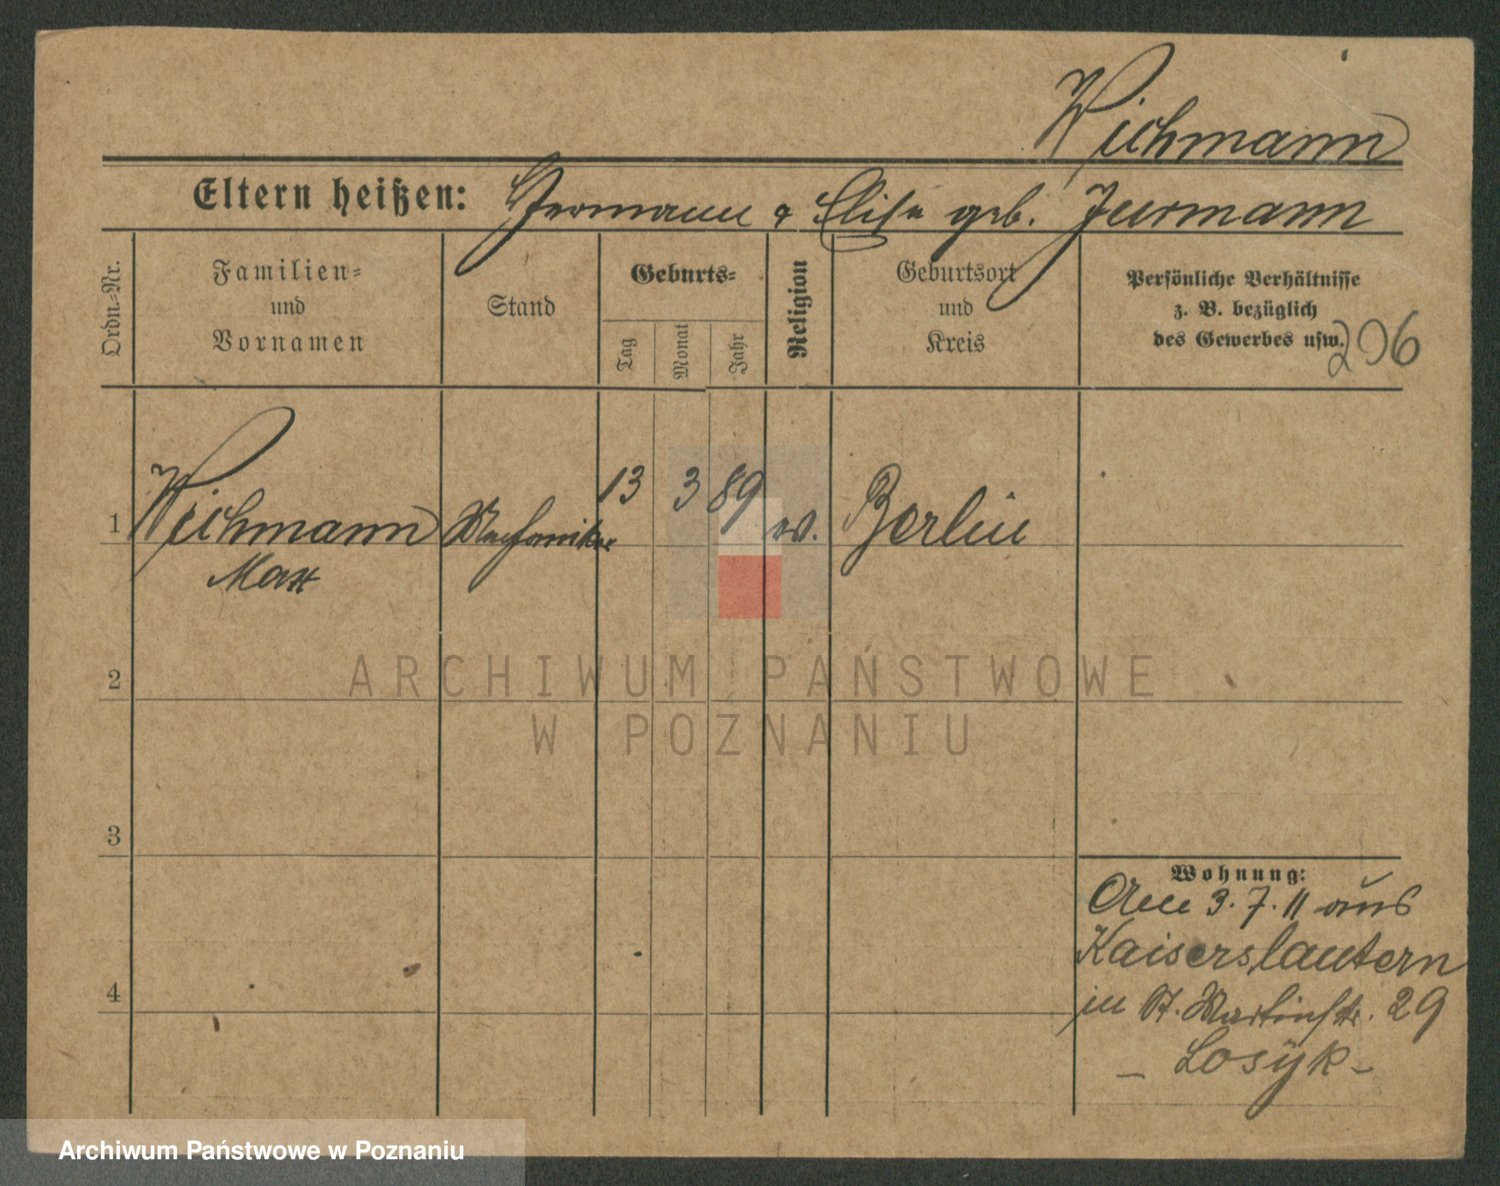 Wichmann
Eltern heißen: Hermann & Elise geb. Jurmann
Ordn.-Nr.
Familien-
und
Vornamen
Stand
Geburts-
Tag
Monat
Jahr
Religion
Geburtsort
und
Kreis
Persönliche Verhältnisse
z. B. bezüglich
des Gewerbes usw.
206
1 Wichmann Mechaniker 13 3 89 ev. Berlin
Max
2
3
4
Wohnung:
3.7.11 aus
Kaiserslautern
in St. Martinstr. 29
- Losyk -
ARCHIWUM PAŃSTWOWE
W POZNANIU
Archiwum Państwowe w Poznaniu